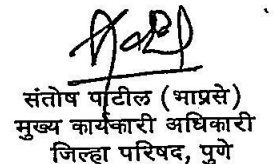 संतोष पाटील (भाप्रसे)
मुख्य कार्यकारी अधिकारी
जिल्हा परिषद, पुणे